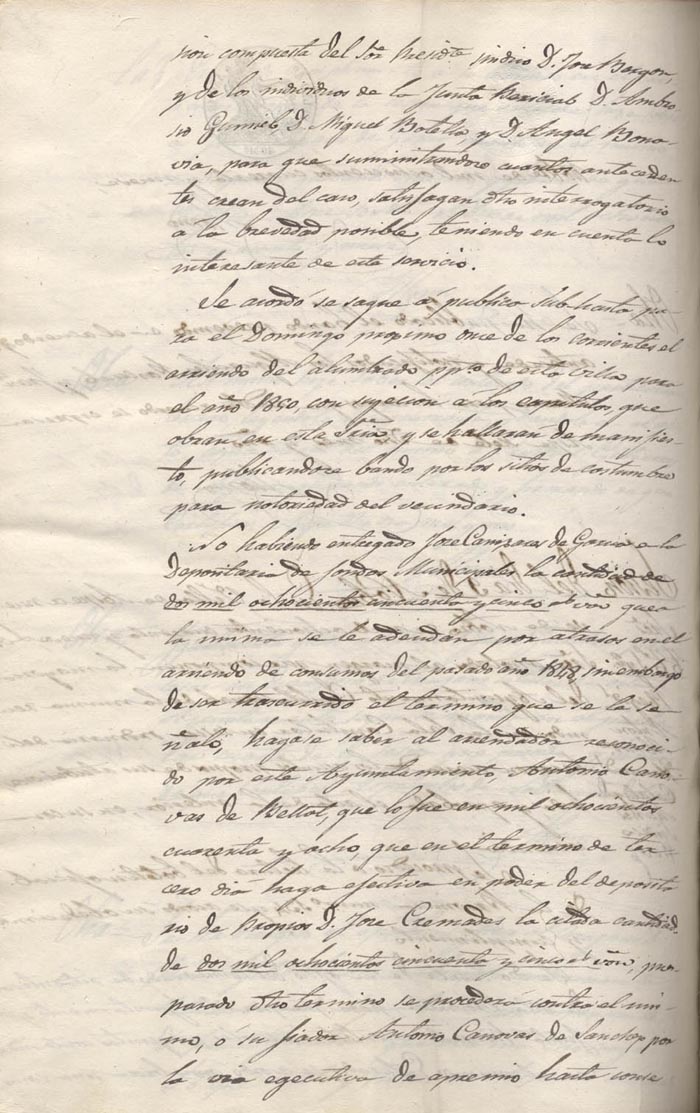 sion compuesta del Sor. Presidte. sindico D. Jose Bergon,
y de los individuos de la Junta Pericial D. Ambro
sio Gumiel, D. Miguel Botella, y D. Angel Bona-
via, para que suministrandose cuantos anteceden
tes crean del caso, satisfagan dho interrogatorio
a la brevedad posible, teniendo en cuenta lo
interesante de este servicio.
Se acordó se saque á publica subhasta pa
ra el Domingo proximo once de los corrientes el
arriendo del alumbrado ppco. de esta villa para
el año 1850, con sujecion a los capitulos, que
obran en esta Sria. y se hallaran de manifies-
to, publicandose bando por los sitios de costumbre
para notoriedad del vecindario.
No habiendo entregado Jose Canizares de Garcia a la
Depositaria de fondos Municipales la cantidad de
dos mil ochocientos cincuenta y cinco rs. von. que a
la misma se le adeudan por atrasos en el
arriendo de consumos del pasado año 1848, sin embargo
de ser trascurrido el termino que se le se
ñaló, hagase saber al arrendador reconoci-
do por este Ayuntamiento, Antonio Cano-
vas de Bellot, que lo fue en mil ochocientos
cuarenta y ocho, que en el termino de ter
cero dia haga efectiva en poder del deposita
rio de Propios D. Jose Cremades la citada cantidad
de dos mil ochocientos cincuenta y cinco rs. von, pues
pasado dho termino se procederá contra el mis-
mo, ó su fiador Antonio Canovas de por
la via egecutiva de apremio hasta conse